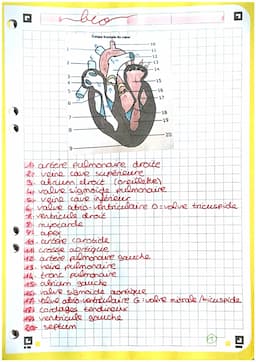 bio
Coupe frontale du cœur
1
2
3
4
5
6
7
8
9
10
11
12
13
14
15
16
17
18
19
20
1. artère pulmonaire droite
2. veine cave supérieure
3. atrium droit (oreillette)
4. valve sigmoïde pulmonaire
5. veine cave inférieur
6. valve atrio-ventriculaire D = valve tricuspide
7. ventricule droit
8. myocarde
9. apex
10. artère carotide
11. crosse aortique
12. artère pulmonaire gauche
13. veine pulmonaire
14. tronc pulmonaire
15. atrium gauche
16. valve sigmoïde aortique
17. valve atrio-ventriculaire G = valve mitrale / bicuspide
18. cordages tendineux
19. ventricule gauche
20. septum